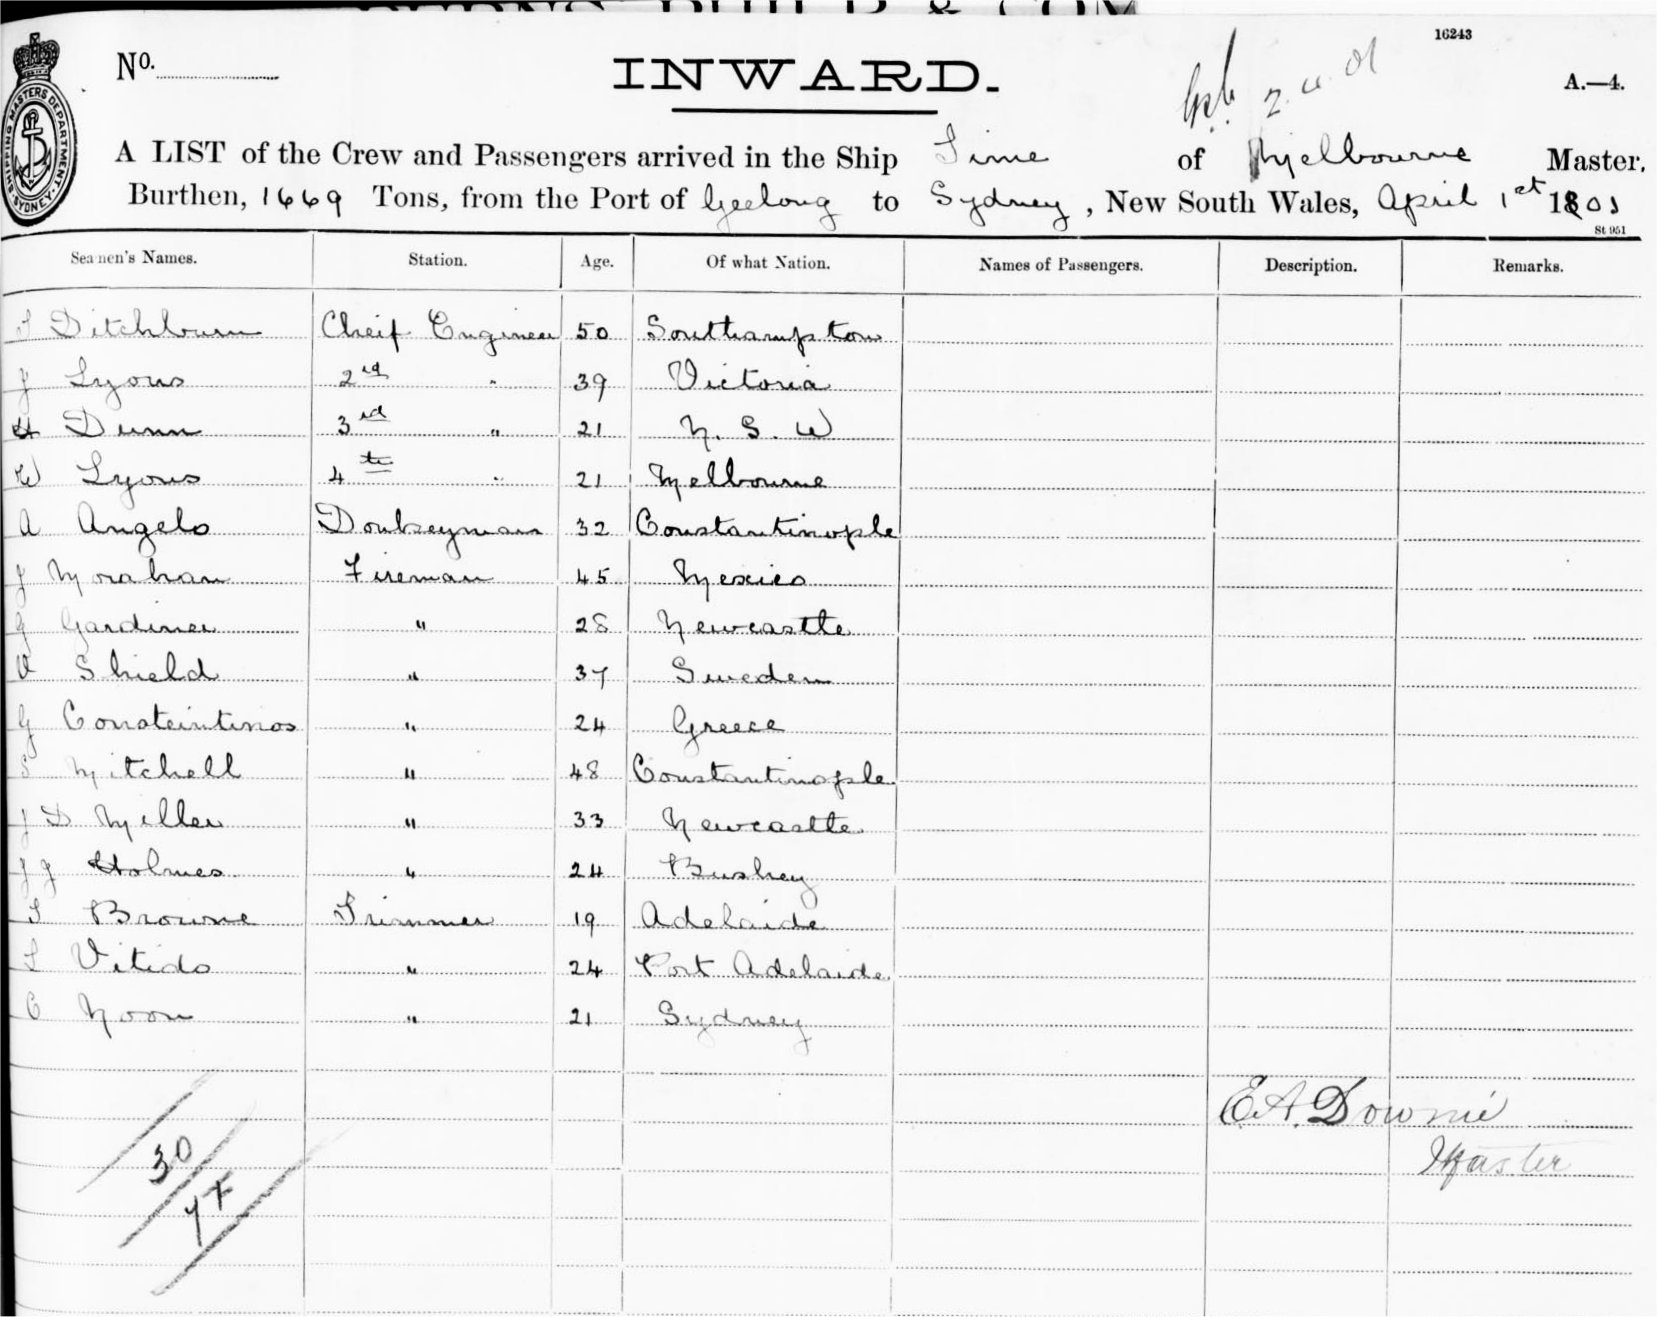 16243
No. INWARD. 2.4.01 A.—4.
SHIPPING MASTERS DEPARTMENT. SYDNEY.
A LIST of the Crew and Passengers arrived in the Ship Time of Melbourne Master,
Burthen, 1669 Tons, from the Port of Geelong to Sydney, New South Wales, April 1st 1901
St 951
Seamen's Names. Station. Age. Of what Nation. Names of Passengers. Description. Remarks.
T Ditchburn Cheif Engineer 50 Southampton
J Lyons 2nd " 39 Victoria
H Dunn 3rd " 21 N. S. W
W Lyons 4th " 21 Melbourne
A Angelo Donkeyman 32 Constantinople
J Morahan Fireman 45 Mexico
G Gardiner " 28 Newcastle
V Shield " 37 Sweden
G Consteintinos " 24 Greece
S Mitchell " 48 Constantinople
J D Miller " 33 Newcastle
J J Holmes " 24 Bushey
T Browne Trimmer 19 Adelaide
L Vitido " 24 Port Adelaide
C Noon " 21 Sydney
E. A. Downie
Master
30